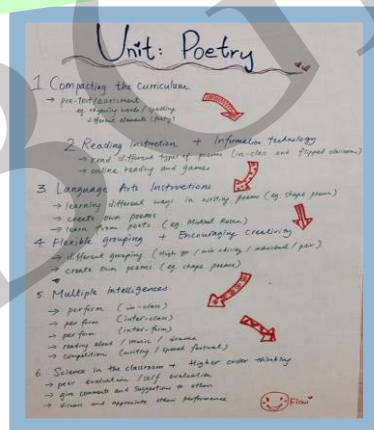 Unit: Poetry
1 Compacting the curriculum
→ pre-test/assessment
eg rhyming words / spelling
different elements (poetry)
2 Reading Instruction + Information technology
→ read different types of poems (in-class and flipped classroom)
→ online reading and games
3 Language Arts Instructions
→ learning different ways in writing poems (eg. shape poem)
→ create own poems
→ learn from poets (eg. Michael Rosen)
4 Flexible grouping + Encouraging Creativity
→ different grouping (high / mix ability / individual / pair)
→ create own poems (eg. shape poems)
5. Multiple intelligences
→ perform (in-class)
→ perform (inter-class)
→ perform (inter-form)
→ reading aloud / music / drama
→ competition (writing / speech festival)
6 Science in the classroom + Higher order thinking
→ peer evaluation / self evaluation
→ give comments and suggestions to others
→ discuss and appreciate others performance